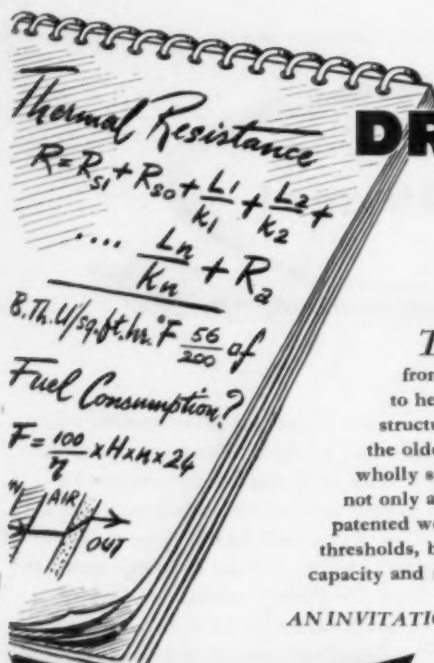 Thermal Resistance
R = RS1 + RSO + L1/K1 + L2/K2 +
.... Ln/Kn + Ra
B.Th.U/sq.ft.hr.°F 56/200 of
Fuel Consumption?
F = 100/η × H × n × 24
AIR
OUT
DR
T
from
to he
struct
the olde
wholly s
not only a
patented we
thresholds, b
capacity and
AN INVITATI